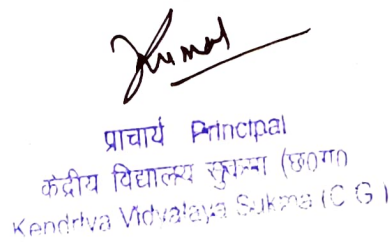 Kumar
प्राचार्य Principal
केंद्रीय विद्यालय सुकमा (छ0ग0)
Kendriya Vidyalaya Sukma (C G)